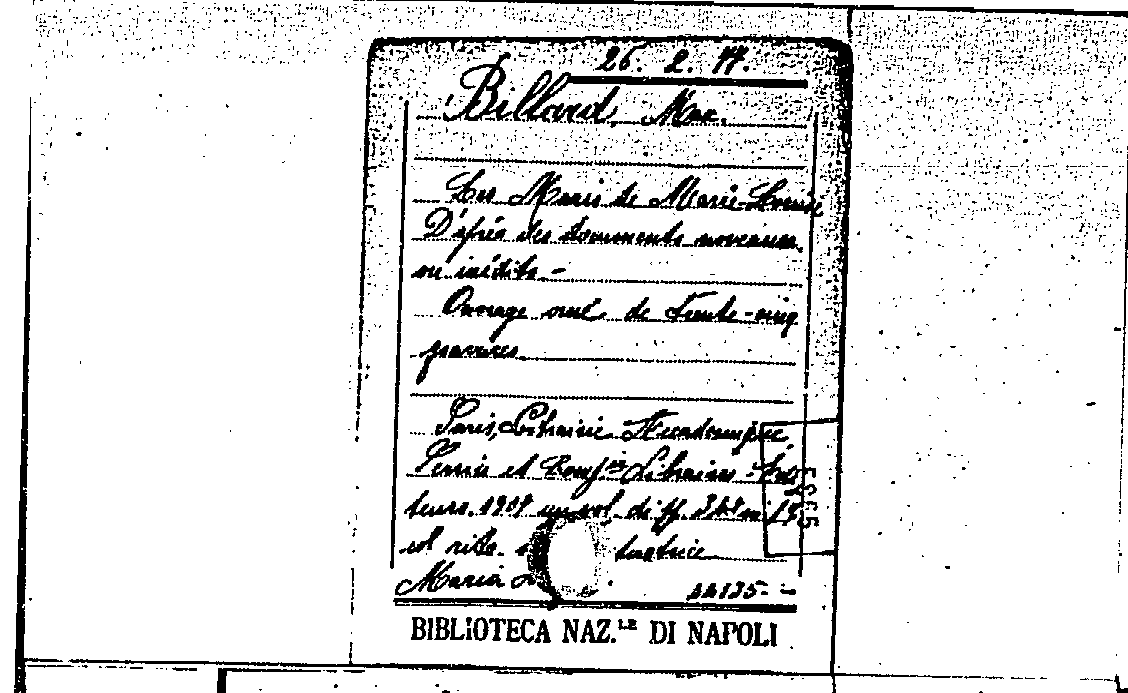 26. 2. 17.
Billard, Max.
Les Maris de Marie-Louise
D'après des documents nouveaux
ou inédits -
Ouvrage orné de trente-cinq
gravures.
Paris, Librairie Académique,
Perrin et Comp.ie Libraires-Edi
teurs. 1909 un vol. di ff. in 18
col ritr.
Maria
BIBLIOTECA NAZ.LE DI NAPOLI